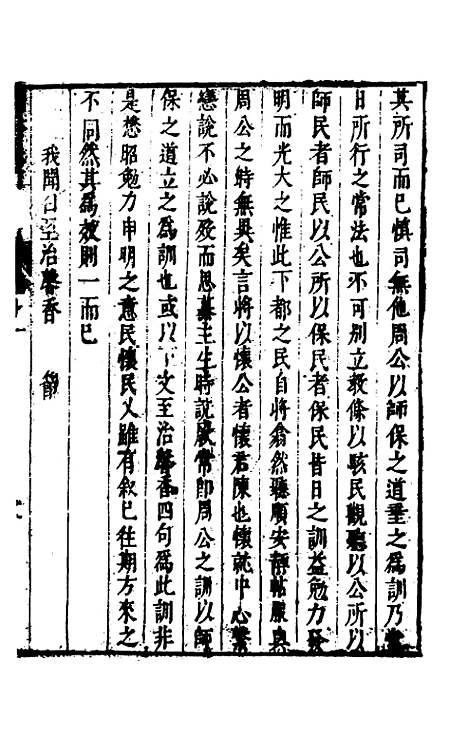 其所司而已慎司無他周公以師保之道垂之為訓乃
日所行之常法也不可別立教條以駭民觀聽以公所以
師民者師民以公所以保民者保民昔日之訓益勉力發
明而光大之惟此下都之民自將翕然聽順安靜帖服與
周公之時無異矣言將以懷公者懷君陳也懷就中心繫
戀說不必說殁而思慕主生時說厥常即周公之訓以師
保之道立之為訓也或以下文至治馨香四句為此訓非
是懋昭勉力申明之意民懷民乂雖有敘已往期方來之
不同然其為效則一而已
我聞曰至治馨香　節